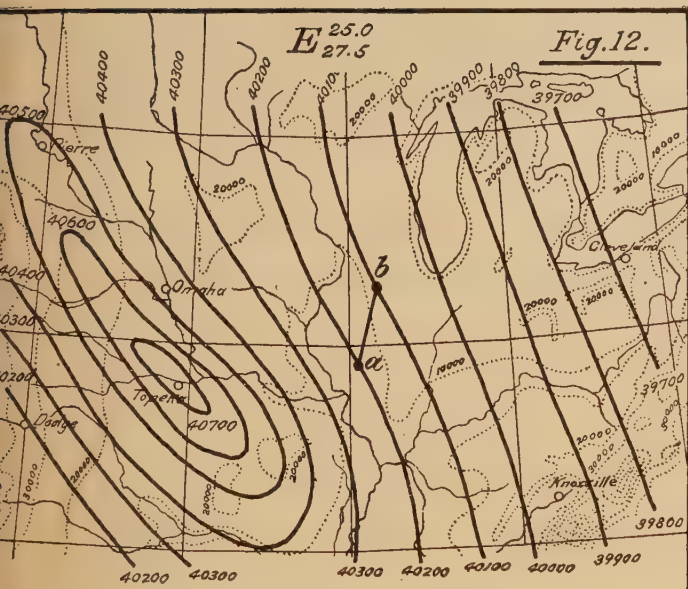 E 25.0
27.5
Fig. 12.
40400
40300
40200
4010
40000
39900
39800
39700
40500
Pierre
20000
20000
20000
20000
10000
40600
40400
Omaha
Cleveland
b
20000
20000
0300
a
10000
Topeka
39700
0200
40700
Dodge
20000
20000
20000
20000
20000
30000
Knoxville
39800
40200
40300
40300
40200
40100
40000
39900